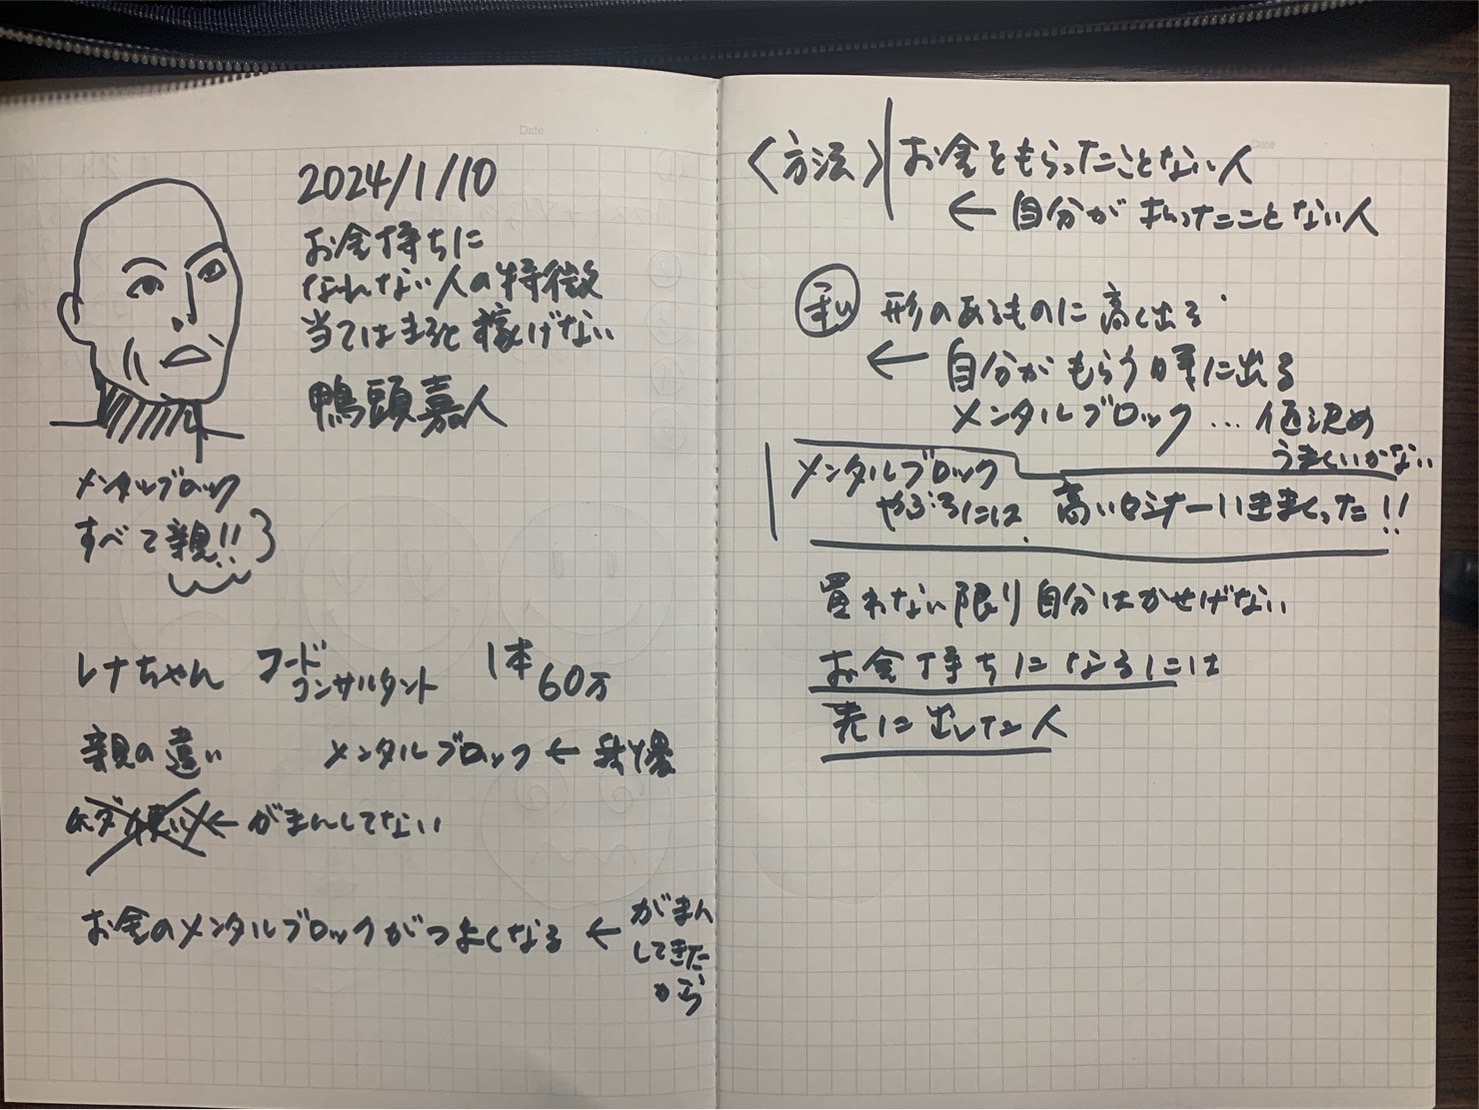 Date
2024/1/10
お金持ちに
なれない人の特徴
当てはまると稼げない
鴨頭嘉人
メンタルブロック
すべて親!!
レナちゃん コード
コンサルタント
1本
60万
親の違い メンタルブロック ←
ムダ使い ← がまんしてない
お金のメンタルブロックがつよくなる ← がまん
してきた
から
Date
〈方法〉 お金をもらったことない人
← 自分が払ったことない人
私 形のあるものに高く出る
← 自分がもらう時に出る
メンタルブロック … 値決め
うまくいかない
メンタルブロック
やぶるには 高いセミナーいきまくった!!
買わない限り自分はかせげない
お金持ちになるには
先に出した人